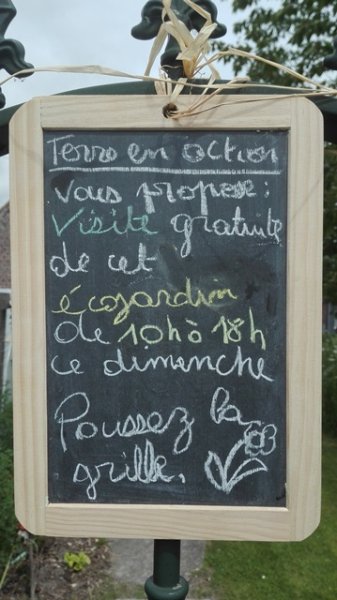 Terre en action
vous propose :
Visite gratuite
de cet
écojardin
de 10h à 18h
ce dimanche
Poussez la
grille.